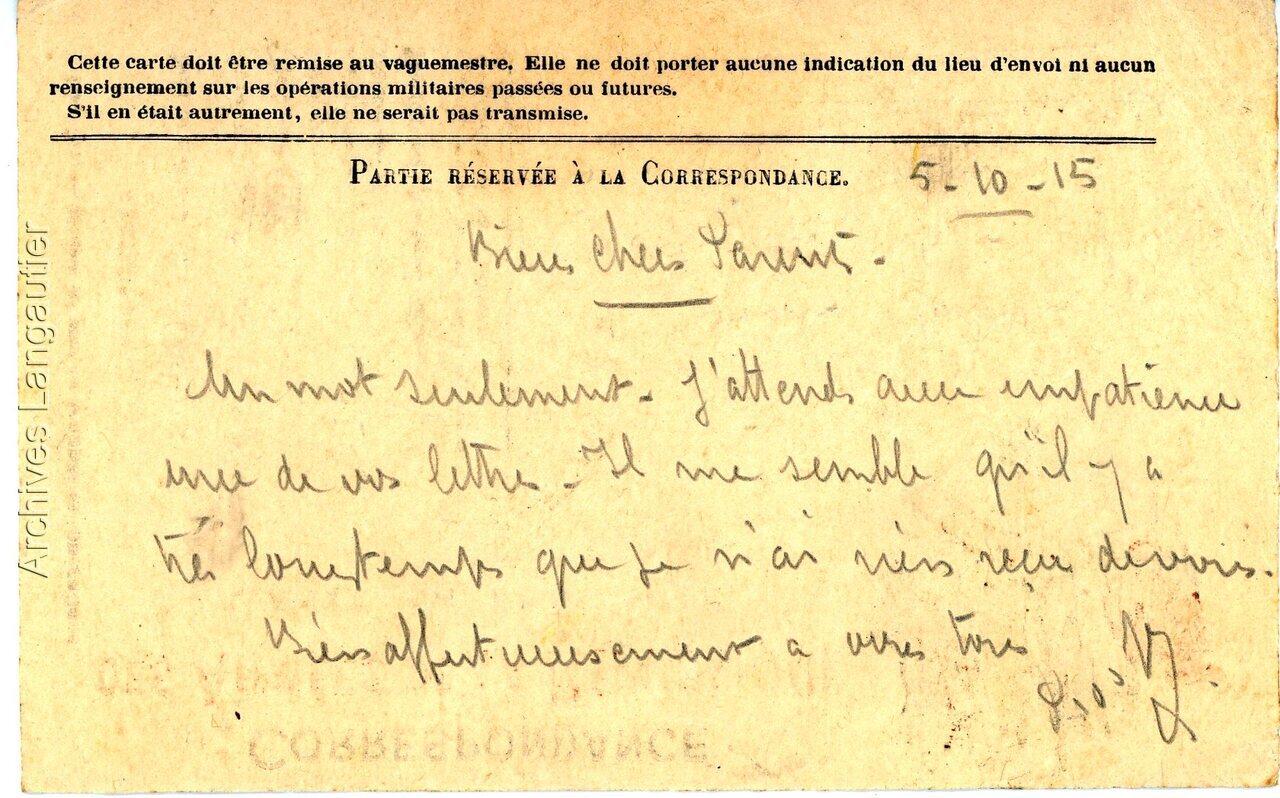 Cette carte doit être remise au vaguemestre. Elle ne doit porter aucune indication du lieu d'envoi ni aucun
renseignement sur les opérations militaires passées ou futures.
S'il en était autrement, elle ne serait pas transmise.
PARTIE RÉSERVÉE À LA CORRESPONDANCE. 5-10-15
Bien chers Parents.
Un mot seulement. J'attends avec impatience
une de vos lettres. Il me semble qu'il y a
très longtemps que je n'ai rien reçu de vous.
Bien affectueusement a vous tous
Archives Langautier
CORRESPONDANCE